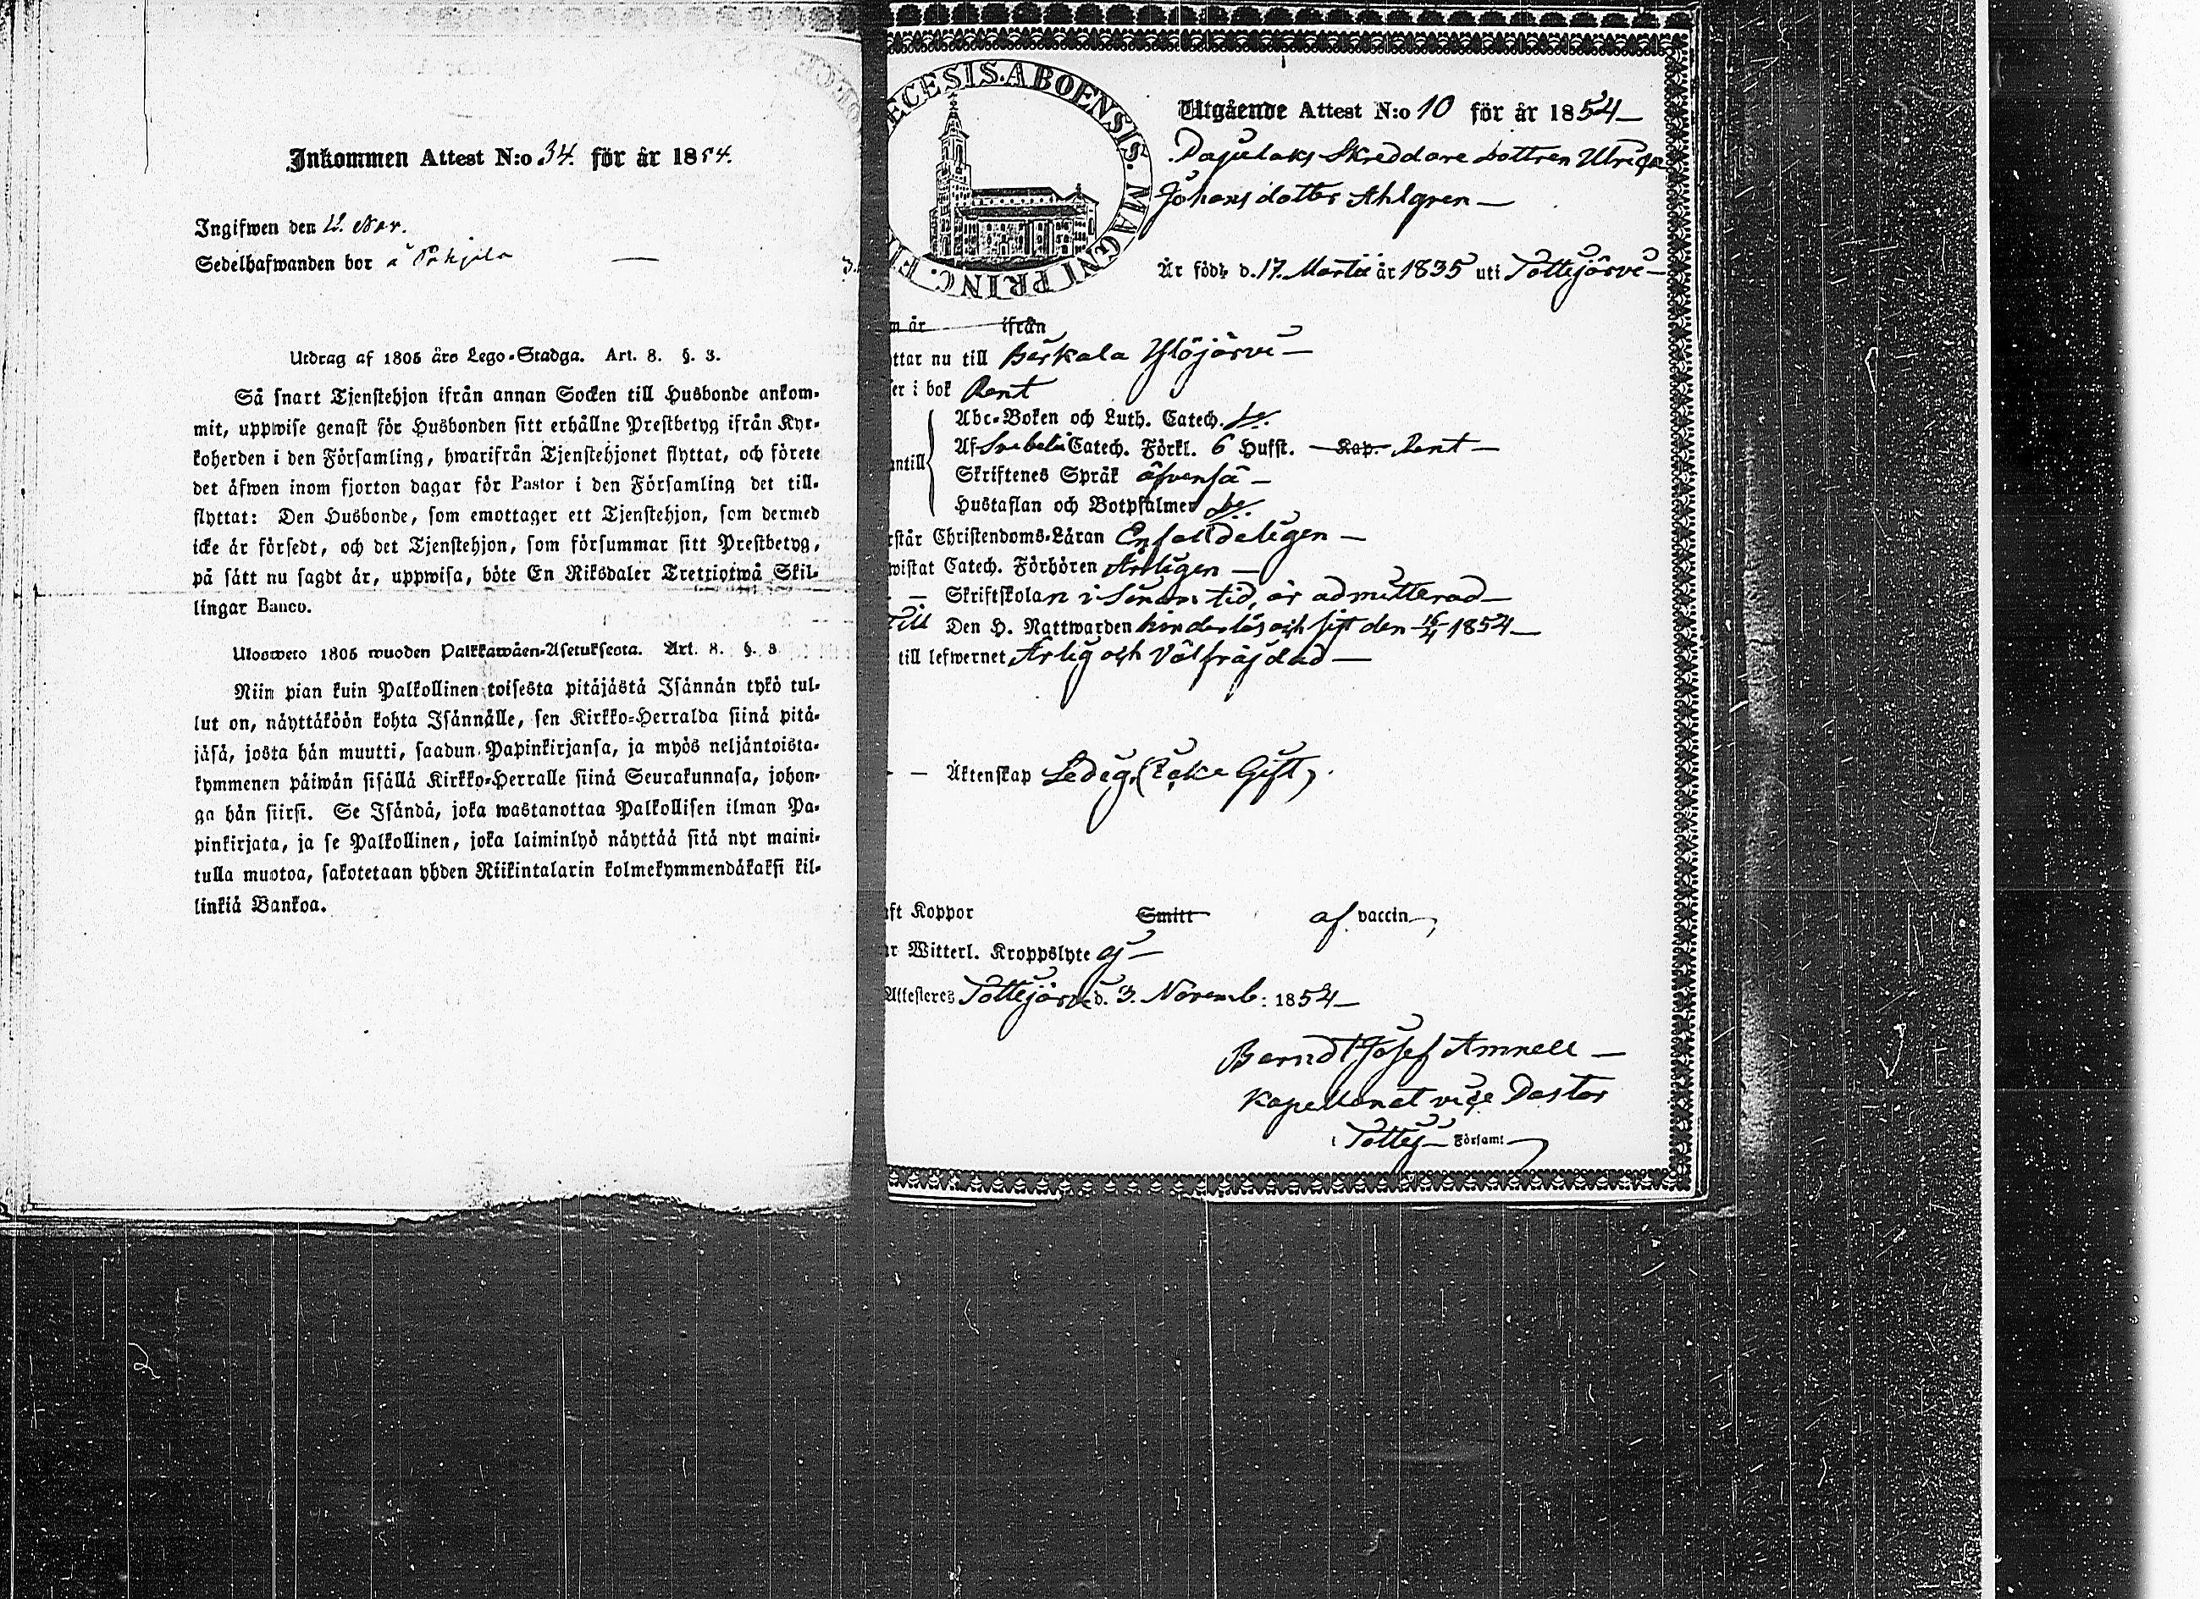 Inkommen Attest N:o 34. för år 1854.
Ingifwen den 12. Nov.
Sedelhafwanden bor å Pohjola —
Utdrag af 1805 års Lego-Stadga. Art. 8. §. 3.
Så snart Tjenstehjon ifrån annan Socken till Husbonde ankom-
mit, uppwise genast för Husbonden sitt erhållne Prestbetyg ifrån Kyr-
koherden i den Församling, hwarifrån Tjenstehjonet flyttat, och förete
det äfwen inom fjorton dagar för Pastor i den Församling det till-
flyttat: Den Husbonde, som emottager ett Tjenstehjon, som dermed
icke är försedt, och det Tjenstehjon, som försummar sitt Prestbetyg,
på sätt nu sagdt är, uppwisa, böte En Riksdaler Trettiotwå Skil-
lingar Banco.
Ulosweto 1805 wuoden Palkkawäen-Asetuksesta. Art. 8. §. 3
Niin pian kuin Palkollinen toisesta pitäjästä Isännän tykö tul-
lut on, näyttäköön kohta Isännälle, sen Kirkko-Herralda siinä pitä-
jäsä, josta hän muutti, saadun Papinkirjansa, ja myös neljäntoista-
kymmenen päiwän sisällä Kirkko-Herralle siinä Seurakunnasa, johon-
ga hän siirsi. Se Isändä, joka wastanottaa Palkollisen ilman Pa-
pinkirjata, ja se Palkollinen, joka laiminlyö näyttää sitä nyt maini-
tulla muotoa, sakotetaan yhden Riikintalarin kolmekymmendäkaksi kil-
linkiä Bankoa.
ECESIS. ABOENSIS. MAGNI PRINC. FI
Utgående Attest N:o 10 för år 1854 —
Skreddare dottren Ulrica
Johansdotter Ahlgren —
Är född d. 17. Martii år 1835 uti Tottijärvi —
m är ifrån
ttar nu till Birkala Ylöjärvi —
er i bok Rent
Abc-Boken och Luth. Catech. do.
Af Svebelii Catech. Förkl. 6 Hufst. — Kap. Rent —
antill Skriftenes Språk äfvenså —
Hustaflan och Botpsalmer do.
rstår Christendoms-Läran Enfaldeligen —
wistat Catech. Förhören Årligen —
— Skriftskolan i sinom tid, är admitterad —
Till Den H. Nattwarden hinderlös och sist den 16/4 1854 —
till lefwernet Ärlig och Välfräjdad —
— Äktenskap Ledig (Icke Gift).
aft Koppor Smitt af vaccin
ar Witterl. Kroppslyte ej —
Attesteres Tottijärvi d. 3. Novemb: 1854 —
Berndt Josef Amnell —
Kapellan et vice Pastor
i Tottij — Församl